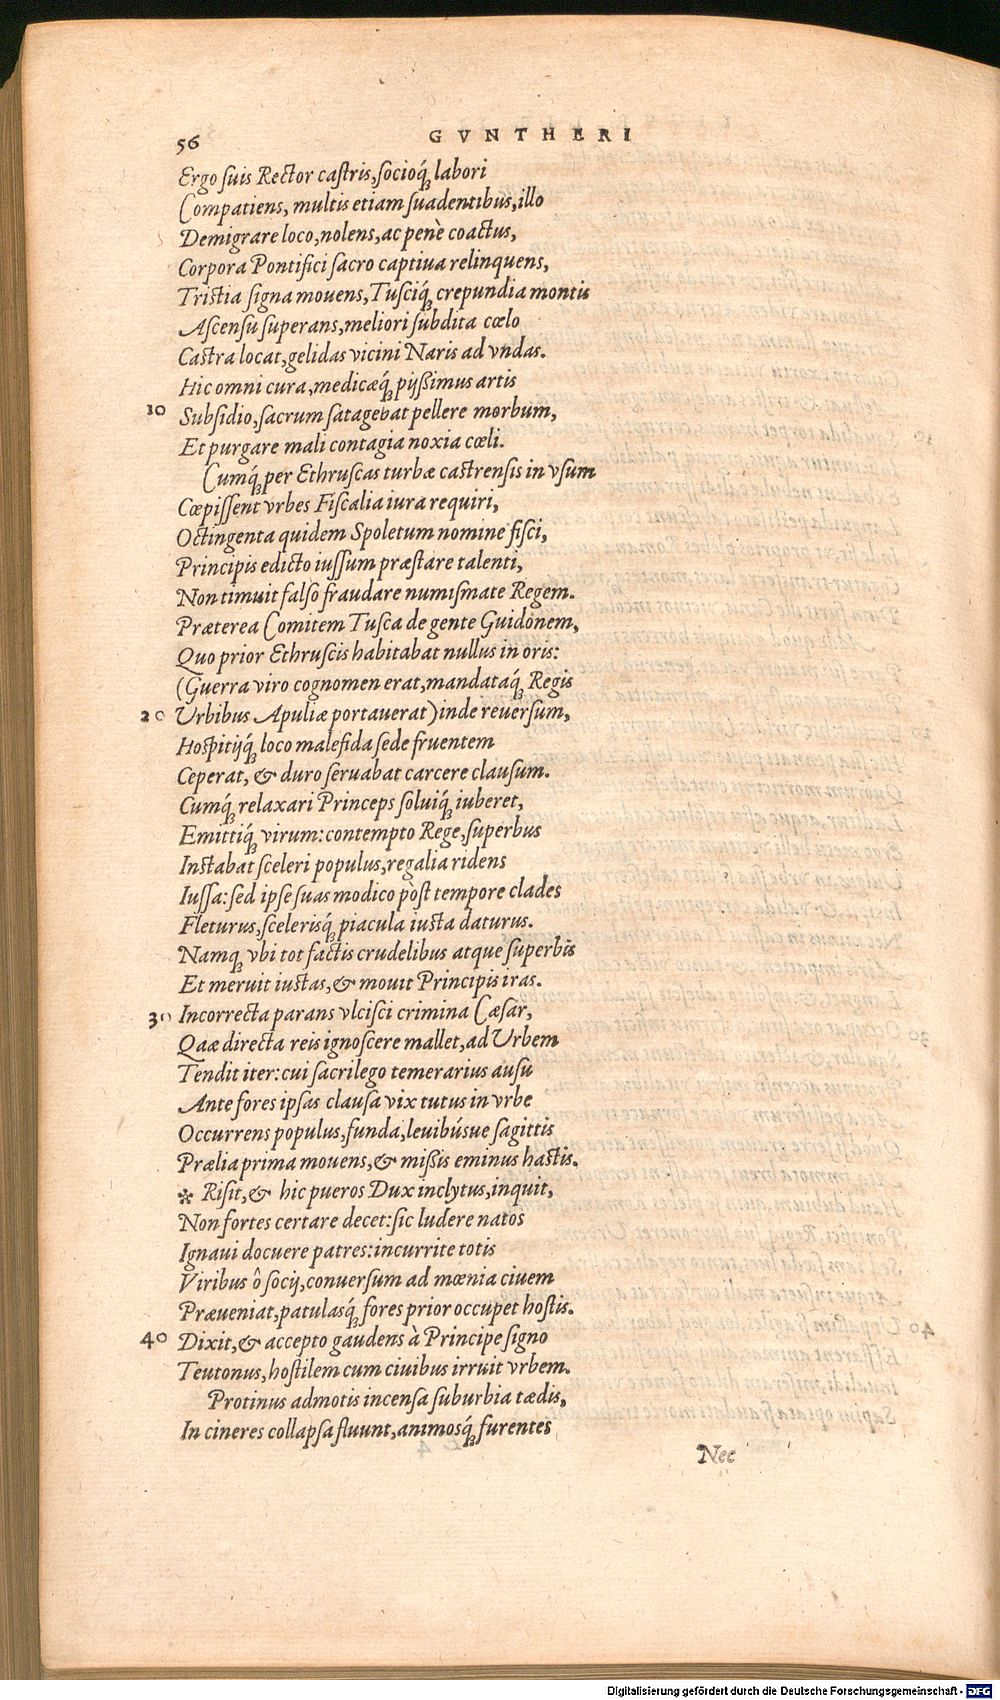 56 GVNTHERI
Ergo suis Rector castris, socioq́ꝫ labori
Compatiens, multis etiam suadentibus, illo
Demigrare loco, nolens, ac penè coactus,
Corpora Pontifici sacro captiua relinquens,
Tristia signa mouens, Tusciq́ꝫ crepundia montis
Ascensu superans, meliori subdita cœlo
Castra locat, gelidas vicini Naris ad vndas.
Hic omni cura, medicæq́ꝫ pijssimus artis
10 Subsidio, sacrum satagebat pellere morbum,
Et purgare mali contagia noxia cœli.
Cumq́ꝫ per Ethruscas turbæ castrensis in vsum
Cœpissent vrbes Fiscalia iura requiri,
Octingenta quidem Spoletum nomine fisci,
Principis edicto iussum præstare talenti,
Non timuit falso fraudare numismate Regem.
Præterea Comitem Tusca de gente Guidonem,
Quo prior Ethruscis habitabat nullus in oris:
(Guerra viro cognomen erat, mandataq́ꝫ Regis
20 Urbibus Apuliæ portauerat) inde reuersum,
Hospitijq́ꝫ loco malefida sede fruentem
Ceperat, & duro seruabat carcere clausum.
Cumq́ꝫ relaxari Princeps soluiq́ꝫ iuberet,
Emittiq́ꝫ virum: contempto Rege, superbus
Instabat sceleri populus, regalia ridens
Iussa: sed ipse suas modico pòst tempore clades
Fleturus, scelerisq́ꝫ piacula iusta daturus.
Namqꝫ vbi tot factis crudelibus atque superbis
Et meruit iustas, & mouit Principis iras.
30 Incorrecta parans vlcisci crimina Cæsar,
Qaæ directa reis ignoscere mallet, ad Urbem
Tendit iter: cui sacrilego temerarius ausu
Ante fores ipsas clausa vix tutus in vrbe
Occurrens populus, funda, leuibúsue sagittis
Prælia prima mouens, & missis eminus hastis.
* Risit, & hic pueros Dux inclytus, inquit,
Non fortes certare decet: sic ludere natos
Ignaui docuere patres: incurrite totis
Viribus ô socij, conuersum ad mœnia ciuem
Præueniat, patulasq́ꝫ fores prior occupet hostis.
40 Dixit, & accepto gaudens à Principe signo
Teutonus, hostilem cum ciuibus irruit vrbem.
Protinus admotis incensa suburbia tædis,
In cineres collapsa fluunt, animosq́ꝫ furentes
Nec
Digitalisierung gefördert durch die Deutsche Forschungsgemeinschaft - DFG